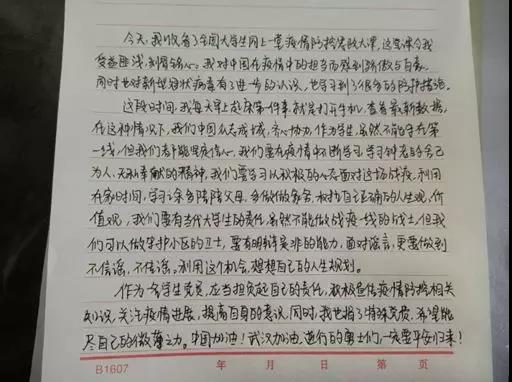 今天,我收看了全国大学生同上一堂疫情防控思政大课,这堂课令我
受益匪浅,刻骨铭心。我对中国在疫情中的担当而感到骄傲与自豪。
同时也对新型冠状病毒有了进一步的认识,也学习到了很多的防护措施。
这段时间,我每天早上起床第一件事就是打开手机,查看最新数据,
在这种情况下,我们中国众志成城,齐心协力,作为学生,虽然不能守在第
一线,但我们都能坚定信心。我们要在疫情中不断学习,学习钟老的舍己
为人,无私奉献的精神,我们要学习以积极的心态面对这场战疫,利用
在家时间,学习之余多陪陪父母,多做做家务,树立自己正确的人生观,价
值观,我们要有当代大学生的责任,虽然不能做战疫一线的战士,但我
们可以做守护小区的卫士,要有明辨是非的能力,面对谣言,更要做到
不信谣,不传谣。利用这个机会,想想自己的人生规划。
作为一名学生党员,应当担负起自己的责任,积极宣传疫情防控相关
知识,关注疫情进展,提高自身的意识,同时,我也捐了特殊党费,希望能
尽自己的微薄之力。中国加油!武汉加油,逆行的勇士们一定要平安归来!
B1607 年 月 日 第 页